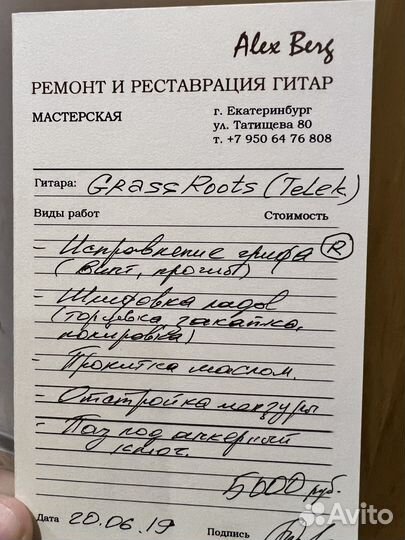 Alex Berg
РЕМОНТ И РЕСТАВРАЦИЯ ГИТАР
МАСТЕРСКАЯ
г. Екатеринбург
ул. Татищева 80
т. +7 950 64 76 808
Гитара: GrassRoots (Telek)
Виды работ Стоимость
- Исправление грифа (R)
(винт, прогиб)
- Шлифовка ладов
(торцевка, закатка,
полировка)
- Пропитка маслом.
- Отстройка мензуры
- Паз под анкерный
ключ.
5000 руб.
Дата 20.06.19 Подпись
Avito